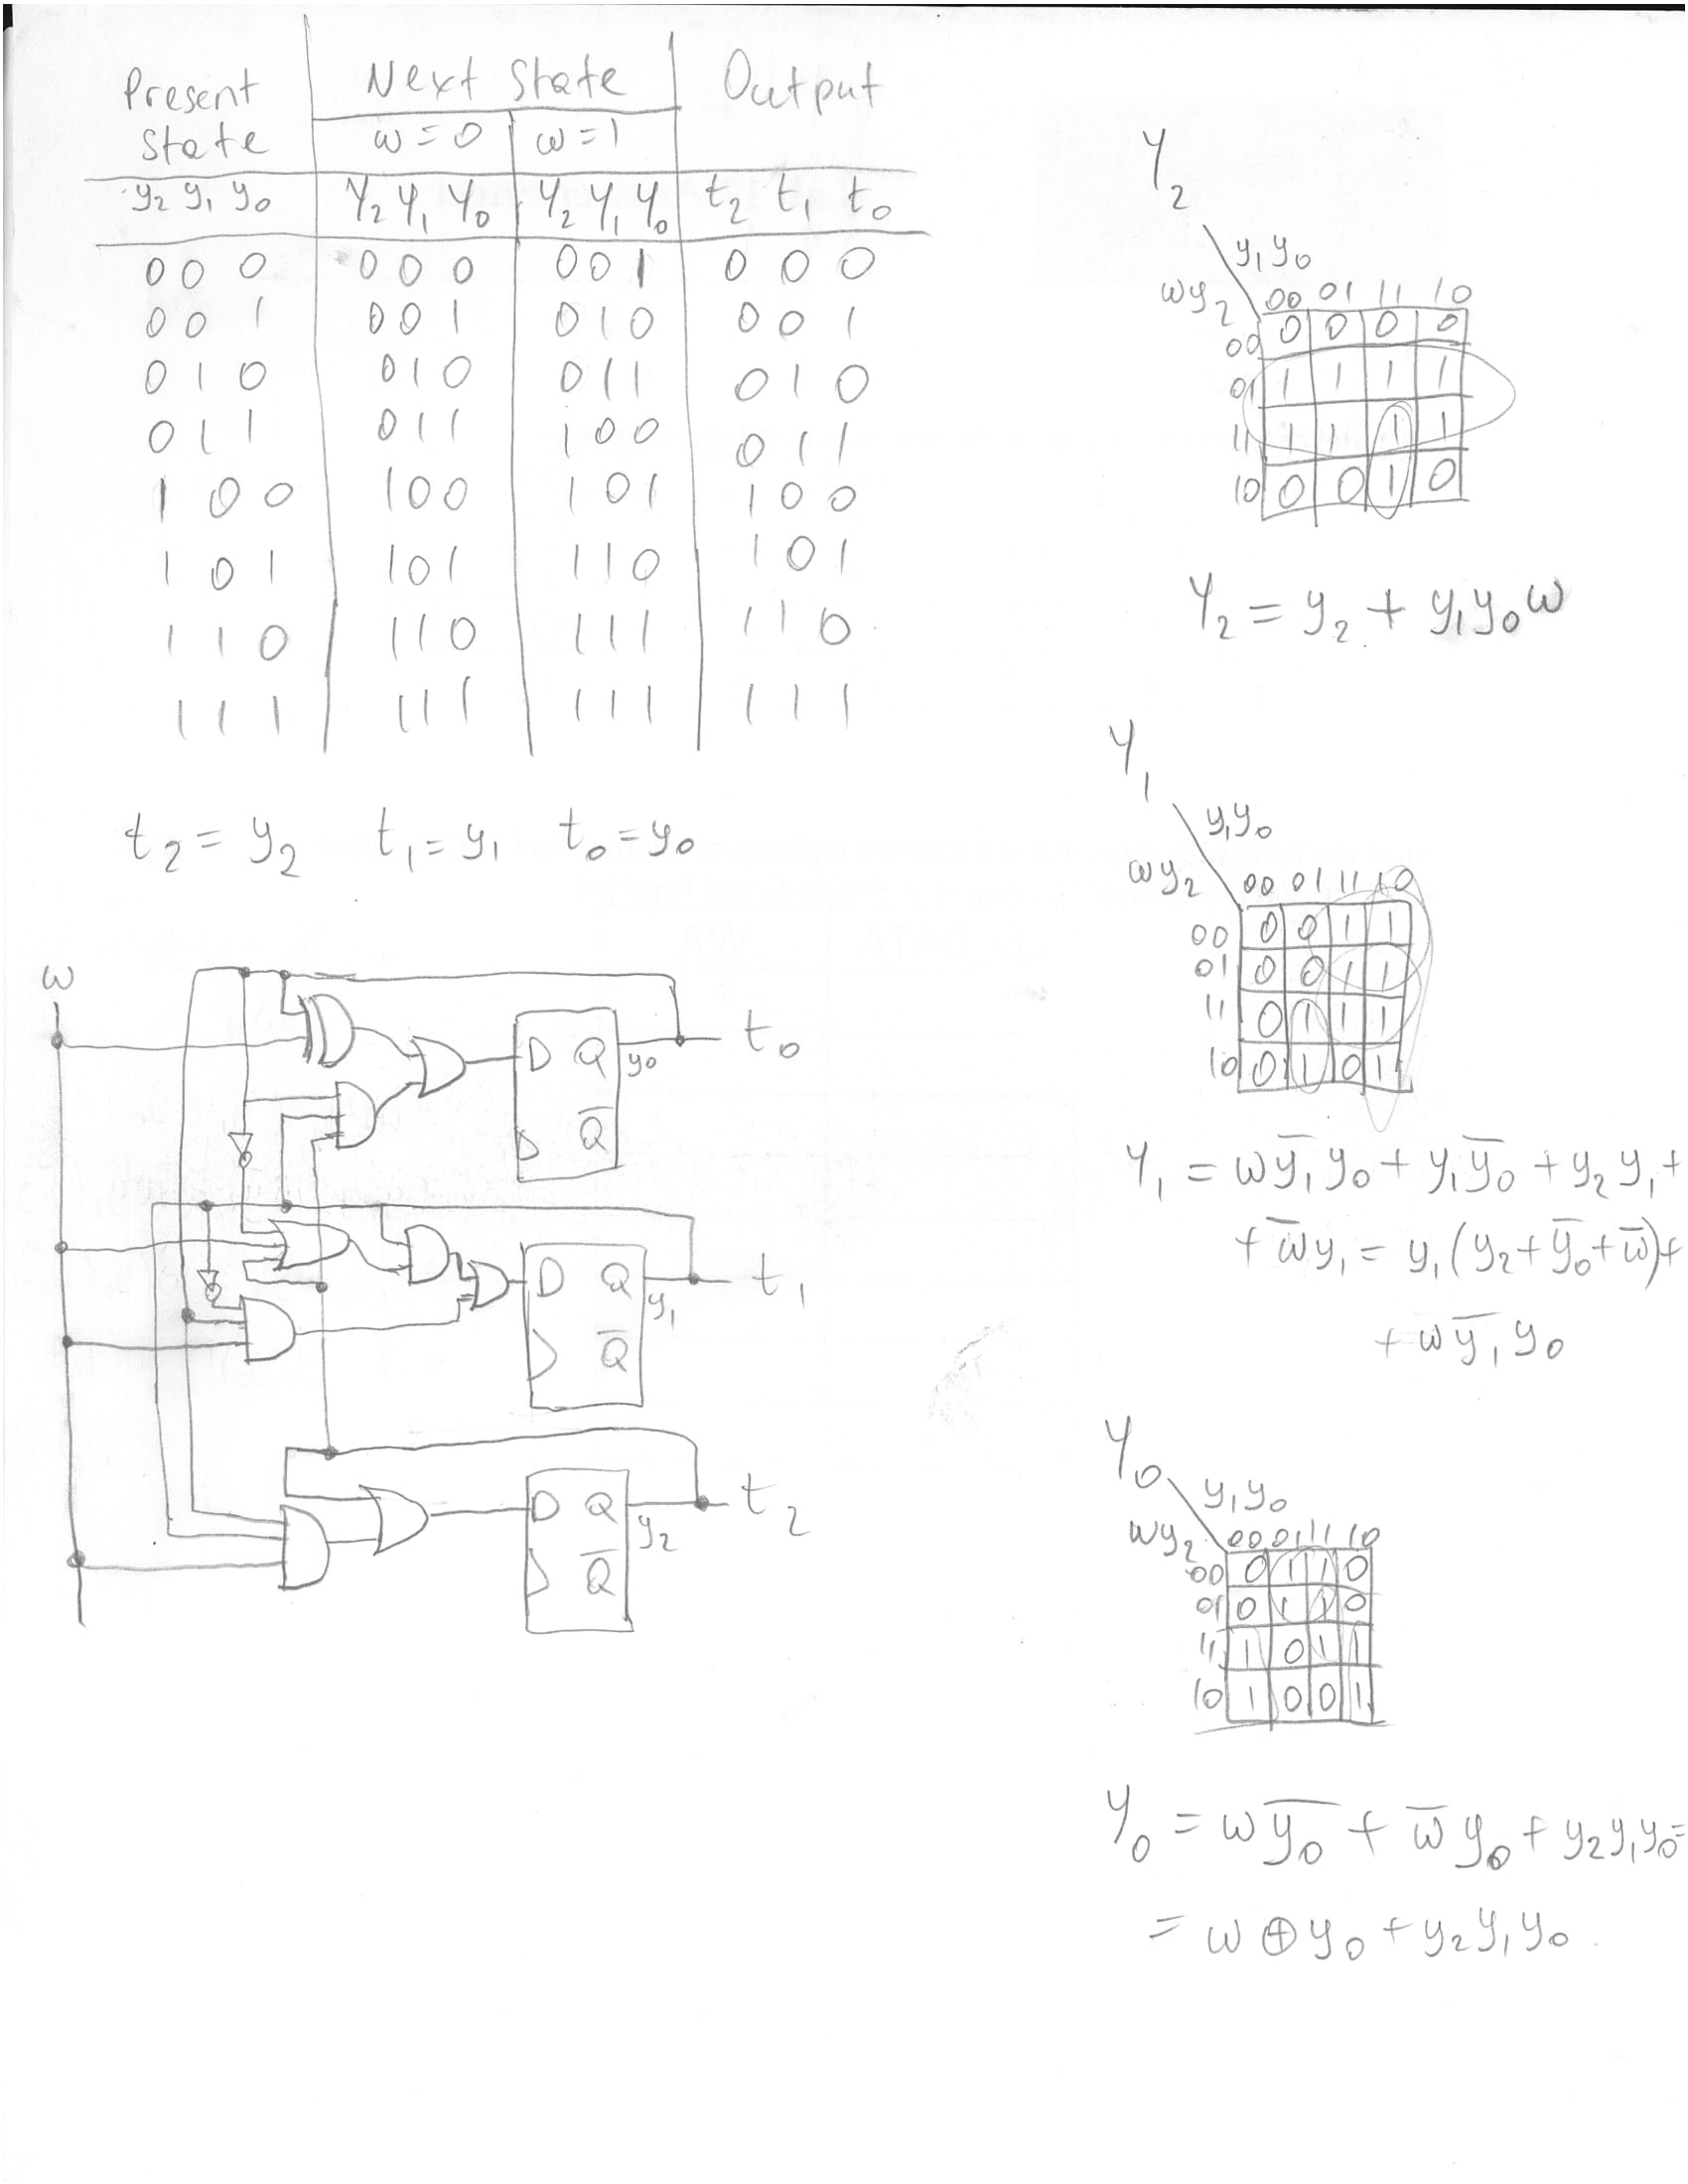 Present State | Next State | Output
w = 0 | w = 1
y₂ y₁ y₀ | Y₂ Y₁ Y₀ | Y₂ Y₁ Y₀ | t₂ t₁ t₀
0 0 0 | 0 0 0 | 0 0 1 | 0 0 0
0 0 1 | 0 0 1 | 0 1 0 | 0 0 1
0 1 0 | 0 1 0 | 0 1 1 | 0 1 0
0 1 1 | 0 1 1 | 1 0 0 | 0 1 1
1 0 0 | 1 0 0 | 1 0 1 | 1 0 0
1 0 1 | 1 0 1 | 1 1 0 | 1 0 1
1 1 0 | 1 1 0 | 1 1 1 | 1 1 0
1 1 1 | 1 1 1 | 1 1 1 | 1 1 1
t₂ = y₂ t₁ = y₁ t₀ = y₀
w
D Q y₀ t₀
Q̅
D Q y₁ t₁
Q̅
D Q y₂ t₂
Q̅
Y₂
y₁y₀
wy₂ 00 01 11 10
00 0 0 0 0
01 1 1 1 1
11 1 1 1 1
10 0 0 1 0
Y₂ = y₂ + y₁y₀w
Y₁
y₁y₀
wy₂ 00 01 11 10
00 0 0 1 1
01 0 0 1 1
11 0 1 1 1
10 0 1 0 1
Y₁ = wy̅₁y₀ + y₁y̅₀ + y₂y₁ +
+ w̅y₁ = y₁(y₂ + y̅₀ + w̅) +
+ wy̅₁y₀
Y₀
y₁y₀
wy₂ 00 01 11 10
00 0 1 1 0
01 0 1 1 0
11 1 0 1 1
10 1 0 0 1
Y₀ = wy̅₀ + w̅y₀ + y₂y₁y₀ =
= w ⊕ y₀ + y₂y₁y₀